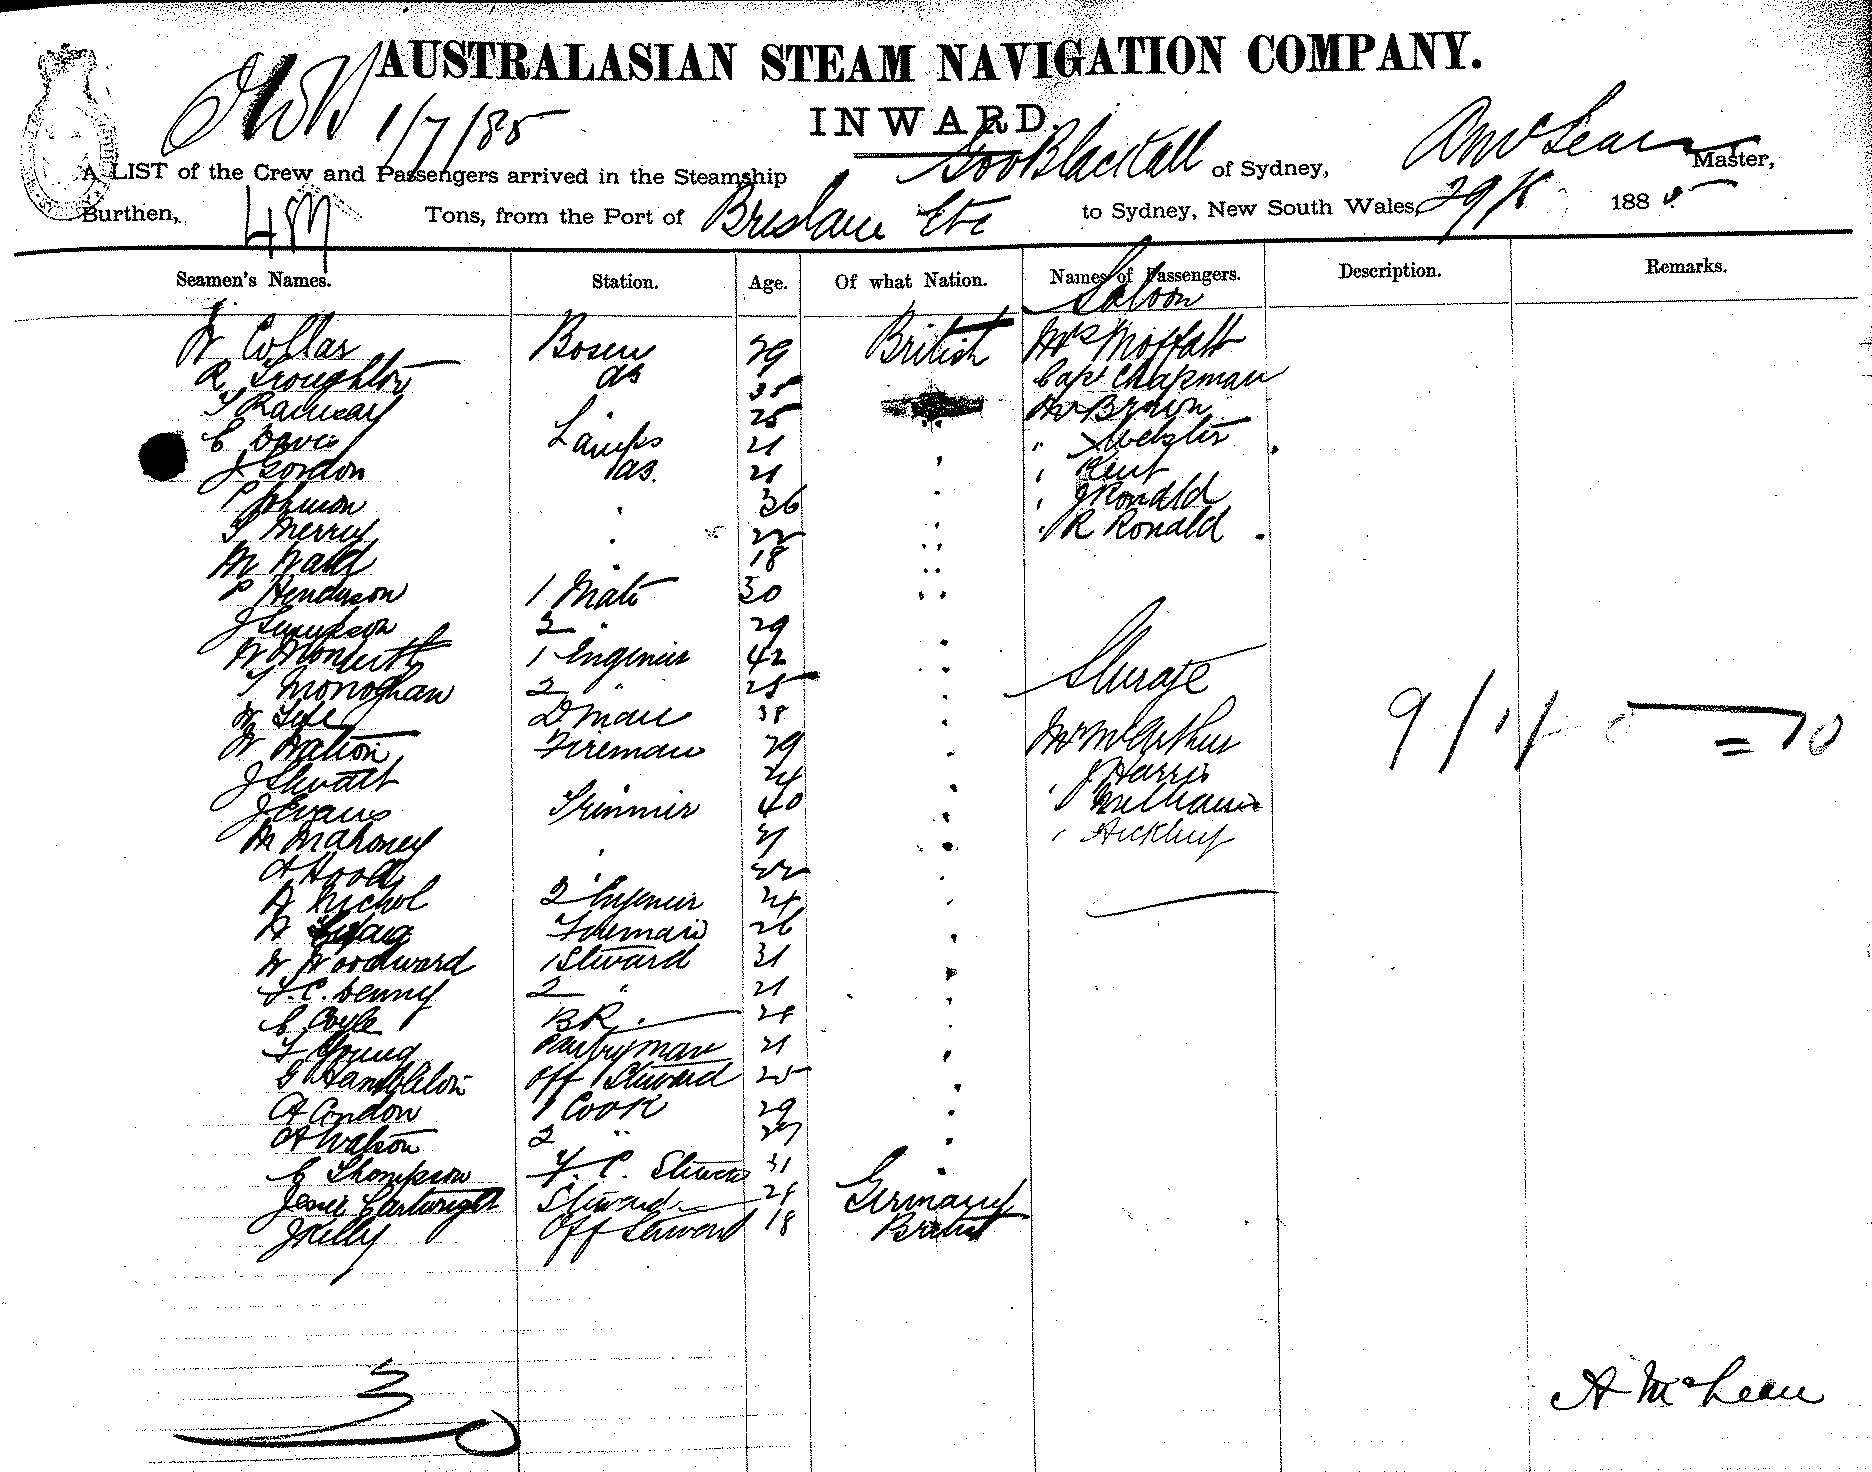 AUSTRALASIAN STEAM NAVIGATION COMPANY.
1/7/85
INWARD.
A LIST of the Crew and Passengers arrived in the Steamship Gov Blackall of Sydney, A McLean Master,
Burthen, Tons, from the Port of Brisbane Etc to Sydney, New South Wales, 29 1885
Seamen's Names. Station. Age. Of what Nation. Names of Passengers. Description. Remarks.
Saloon
W Collar Bosun 29 British Mrs Moffatt
R Troughton do 35 Cap Chapman
T Ramsay 25 Mr Brown
C Davis Lamps 21 " Webster
J Gordon do. 21 " Kent
P Johnson " 36 " J Ronald
T Merry " 22 " R Ronald
M Ward " 18
P Henderson 1 Mate 30
J 2 " 29
W Monteith 1 Engineer 42
T Monoghan 2 " 25 Steerage
W D man 38
W Watson Fireman 29 Mr McArthur 9/1/ = 10
J Stuart 24 J Harris
J Evans Trimmer 40 " Williams
M Mahoney " 31 "
A Hood " 22
A Nichol 2 Engineer 24
W Fireman 26
W Woodward 1 Steward 31
F. C. Denny 2 " 21
C Coyle BR. 24
F Young Pantryman 21
G Hambleton Off Steward 25
A Condon 1 Cook 29
A Watson 2 " 27
C Thompson F. C. Steward 31
Jessie Cartwright Steward 24 Germany
J Kelly Off Steward 18 British
30
A McLean